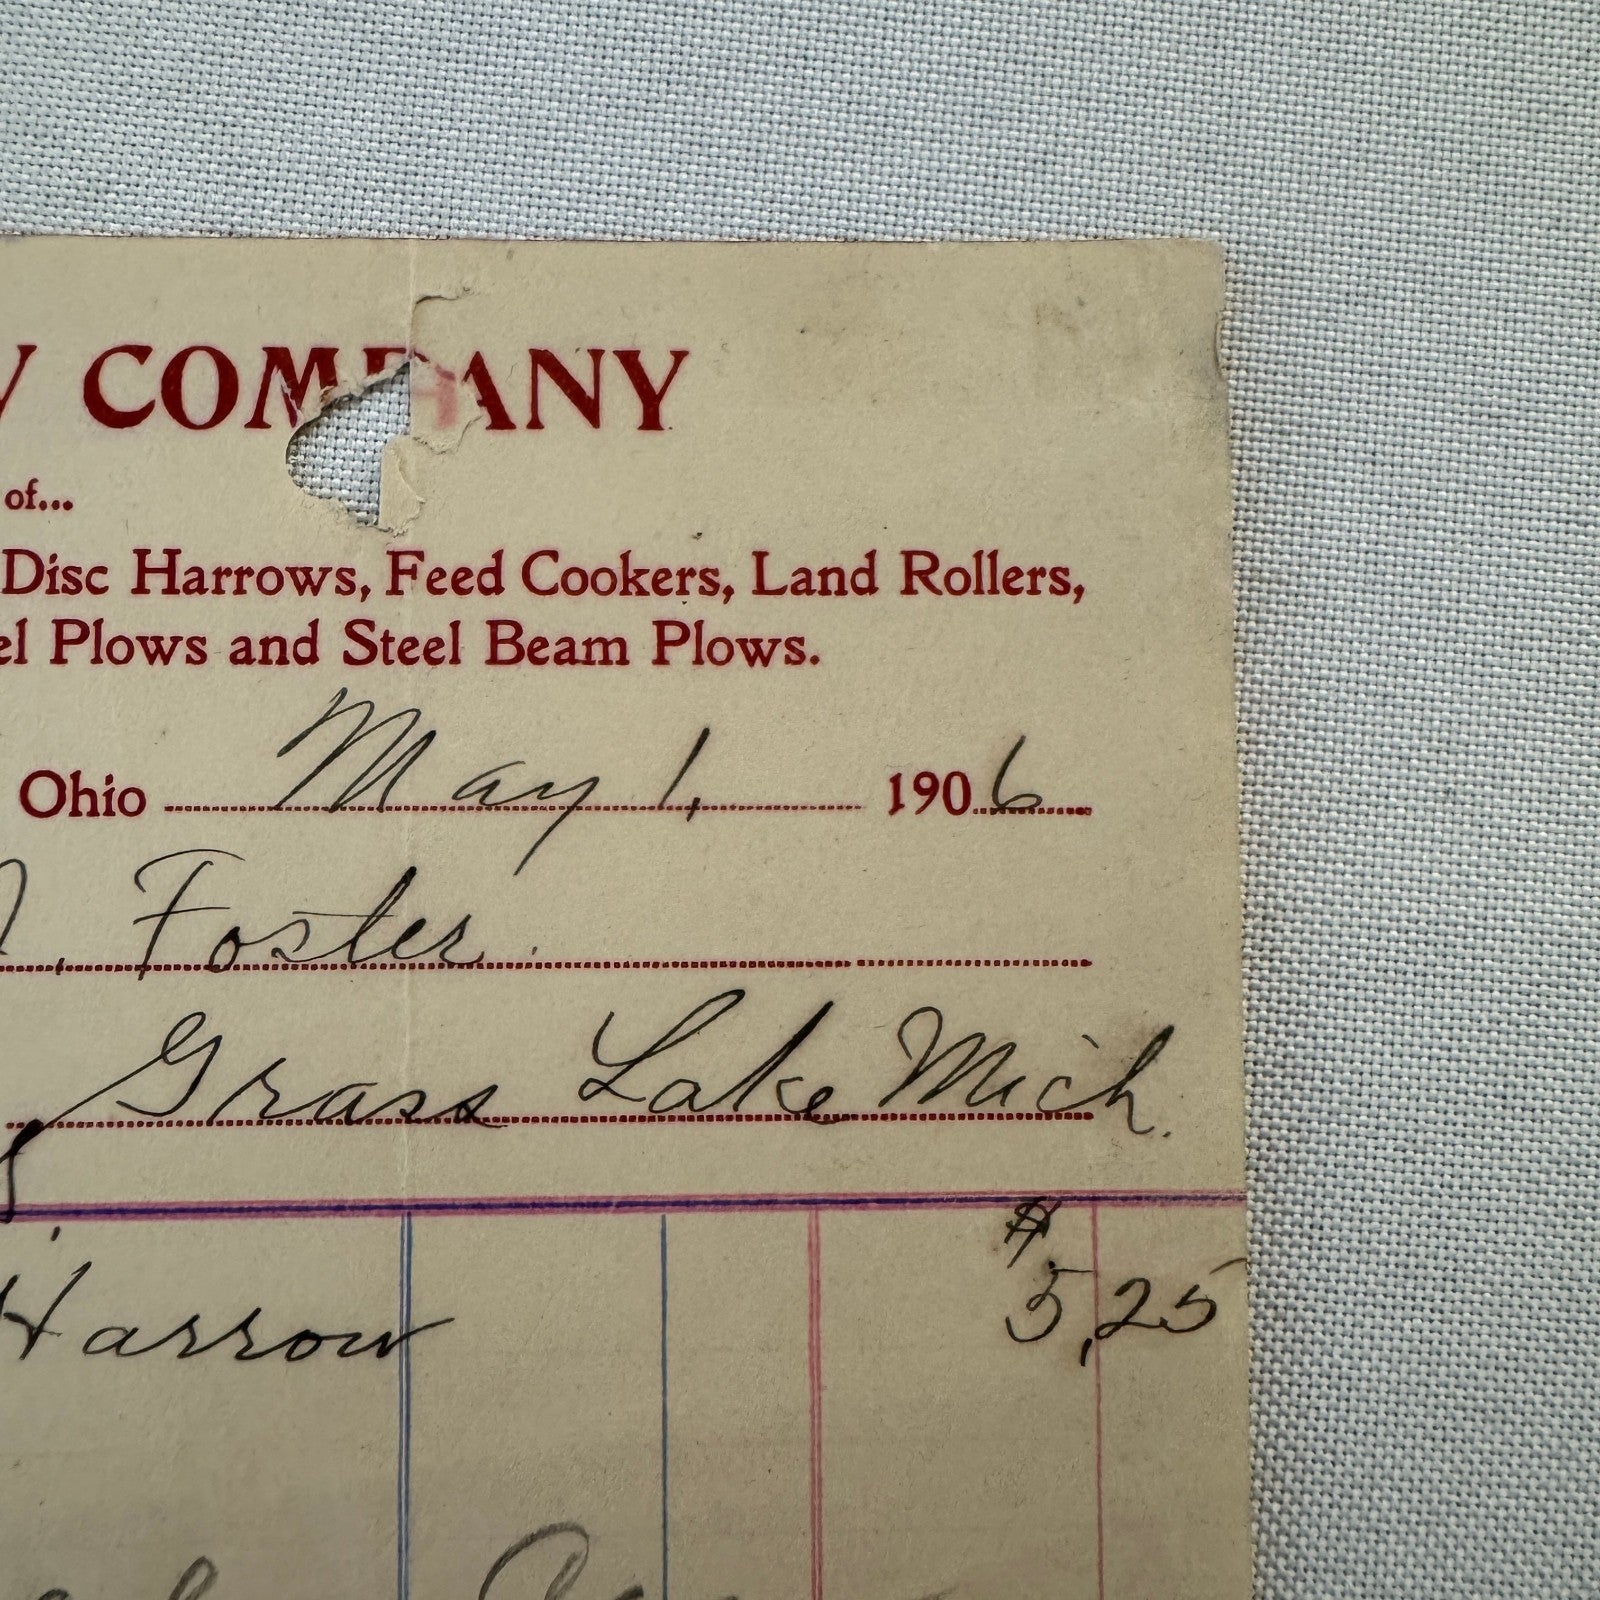 COMPANY
of...
Disc Harrows, Feed Cookers, Land Rollers,
el Plows and Steel Beam Plows.
Ohio May 1, 1906
Foster
Grass Lake Mich.
Harrow $5,25